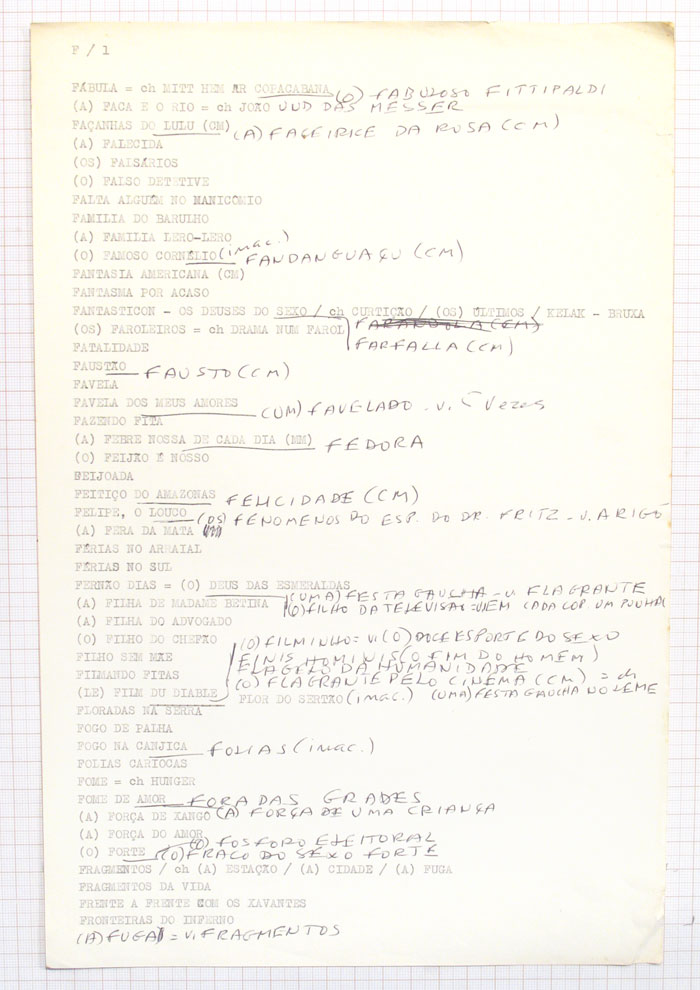 F / 1
FÁBULA = ch MITT HEM ÄR COPACABANA (O) FABULOSO FITTIPALDI
(A) FACA E O RIO = ch JOÃO UUD DAS MESSER
FAÇANHAS DO LULU (CM) (A) FACEIRICE DA ROSA (CM)
(A) FALECIDA
(OS) FALSÁRIOS
(O) FALSO DETETIVE
FALTA ALGUÉM NO MANICÔMIO
FAMILIA DO BARULHO
(A) FAMILIA LERO-LERO
(O) FAMOSO CORNÉLIO (imac.) FANDANGUAÇU (CM)
FANTASIA AMERICANA (CM)
FANTASMA POR ACASO
FANTASTICON - OS DEUSES DO SEXO / ch CURTIÇÃO / (OS) ÚLTIMOS / KELAK - BRUXA
(OS) FAROLEIROS = ch DRAMA NUM FAROL FARANDOLA (CM)
FATALIDADE FARFALLA (CM)
FAUSTÃO FAUSTO (CM)
FAVELA
FAVELA DOS MEUS AMORES (UM) FAVELADO . v. 5 Vezes
FAZENDO FITA
(A) FEBRE NOSSA DE CADA DIA (MM) FEDORA
(O) FEIJÃO É NOSSO
FEIJOADA
FEITIÇO DO AMAZONAS FELICIDADE (CM)
FELIPE, O LOUCO (OS) FENOMENOS DO ESP. DO DR. FRITZ - v. ARIGÓ
(A) FERA DA MATA
FÉRIAS NO ARRAIAL
FÉRIAS NO SUL
FERNÃO DIAS = (O) DEUS DAS ESMERALDAS
(A) FILHA DE MADAME BETINA (UMA) FESTA GAUCHA - v. FLAGRANTE
(O) FILHO DA TELEVISÃO = v. EM CADA COR. UM PUNHAL
(A) FILHA DO ADVOGADO
(O) FILHO DO CHEFÃO (O) FILMINHO = v. (O) DOCE ESPORTE DO SEXO
FILHO SEM MÃE FINIS HOMINIS (O FIM DO HOMEM)
FILMANDO FITAS FLAGELO DA HUMANIDADE
(LE) FILM DU DIABLE (O) FLAGRANTE PELO CINEMA (CM) = ch
FLORADAS NA SERRA FLOR DO SERTÃO (imac.) (UMA) FESTA GAUCHA NO LEME
FOGO DE PALHA
FOGO NA CANJICA FOLIAS (imac.)
FOLIAS CARIOCAS
FOME = ch HUNGER
FOME DE AMOR FORA DAS GRADES
(A) FORÇA DE XANGÔ (A) FORÇA DE UMA CRIANÇA
(A) FORÇA DO AMOR
(O) FORTE (O) FOSFORO ELEITORAL
(O) FRACO DO SEXO FORTE
FRAGMENTOS / ch (A) ESTAÇÃO / (A) CIDADE / (A) FUGA
FRAGMENTOS DA VIDA
FRENTE A FRENTE COM OS XAVANTES
FRONTEIRAS DO INFERNO
(A) FUGA = v. FRAGMENTOS